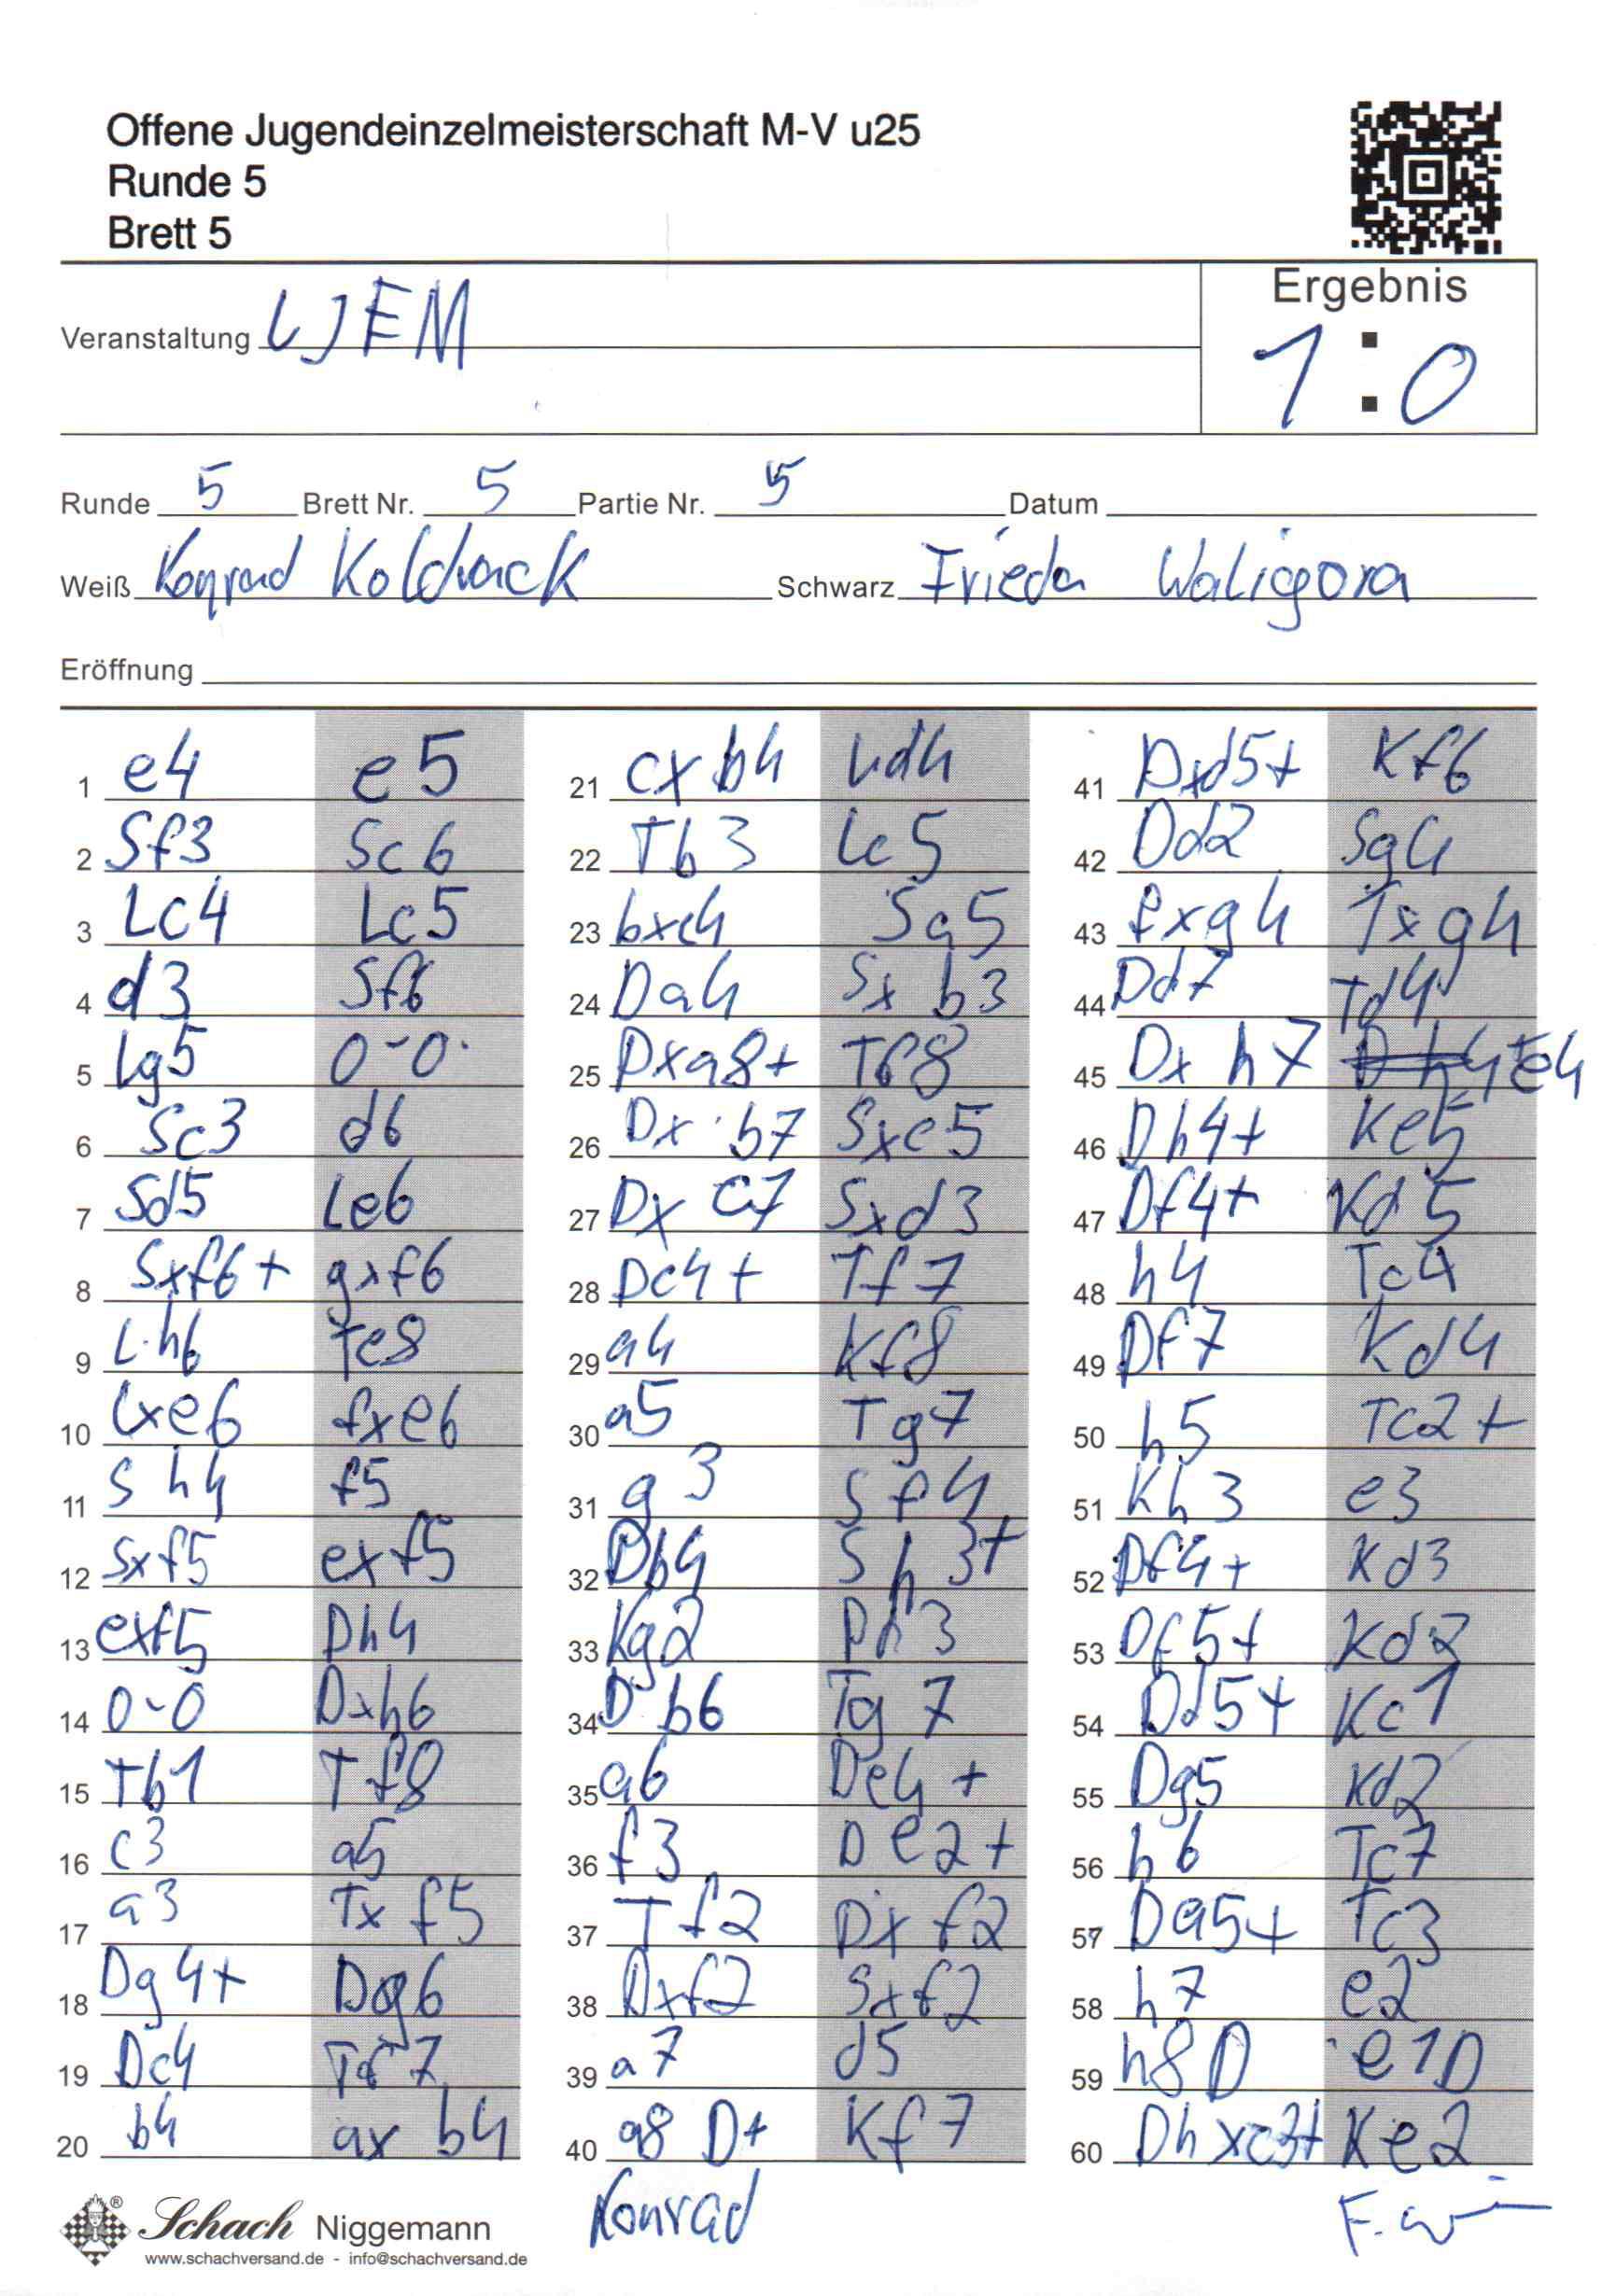 Offene Jugendeinzelmeisterschaft M-V u25
Runde 5
Brett 5
Ergebnis
Veranstaltung LJEM
1 : 0
Runde 5 Brett Nr. 5 Partie Nr. 5 Datum
Weiß Konrad Schwarz Frieda Waligora
Eröffnung
1 e4 e5
2 Sf3 Sc6
3 Lc4 Lc5
4 d3 Sf6
5 Lg5 0-0
6 Sc3 d6
7 Sd5 Le6
8 Sxf6+ gxf6
9 Lh6 Te8
10 Lxe6 fxe6
11 Sh4 f5
12 Sxf5 exf5
13 exf5 Dh4
14 0-0 Dxh6
15 Tb1 Tf8
16 c3 a5
17 a3 Txf5
18 Dg4+ Dg6
19 Dc4 Tf7
20 b4 axb4
21 cxb4 Ld4
22 Tb3 Lc5
23 bxc4 Sa5
24 Da4 Sxb3
25 Dxa8+ Tf8
26 Dxb7 Sxc5
27 Dxc7 Sxd3
28 Dc4+ Tf7
29 a4 Kf8
30 a5 Tg7
31 g3 Sf4
32 Db4 Sh3+
33 Kg2 Dh3
34 Db6 Tg7
35 a6 De4+
36 f3 De2+
37 Tf2 Dxf2
38 Dxf2 Sxf2
39 a7 d5
40 a8D+ Kf7
41 Dxd5+ Kf6
42 Dd2 Sg4
43 fxg4 Txg4
44 Dd7 Td4
45 Dxh7 Te4
46 Dh4+ Ke5
47 Df4+ Kd5
48 h4 Tc4
49 Df7 Kd4
50 h5 Tc2+
51 Kh3 e3
52 Df4+ Kd3
53 Df5+ Kd2
54 Dd5+ Kc1
55 Dg5 Kd2
56 h6 Tc7
57 Da5+ Tc3
58 h7 e2
59 h8D e1D
60 Dhxc3+ Ke2
Konrad
Schach Niggemann
www.schachversand.de - info@schachversand.de